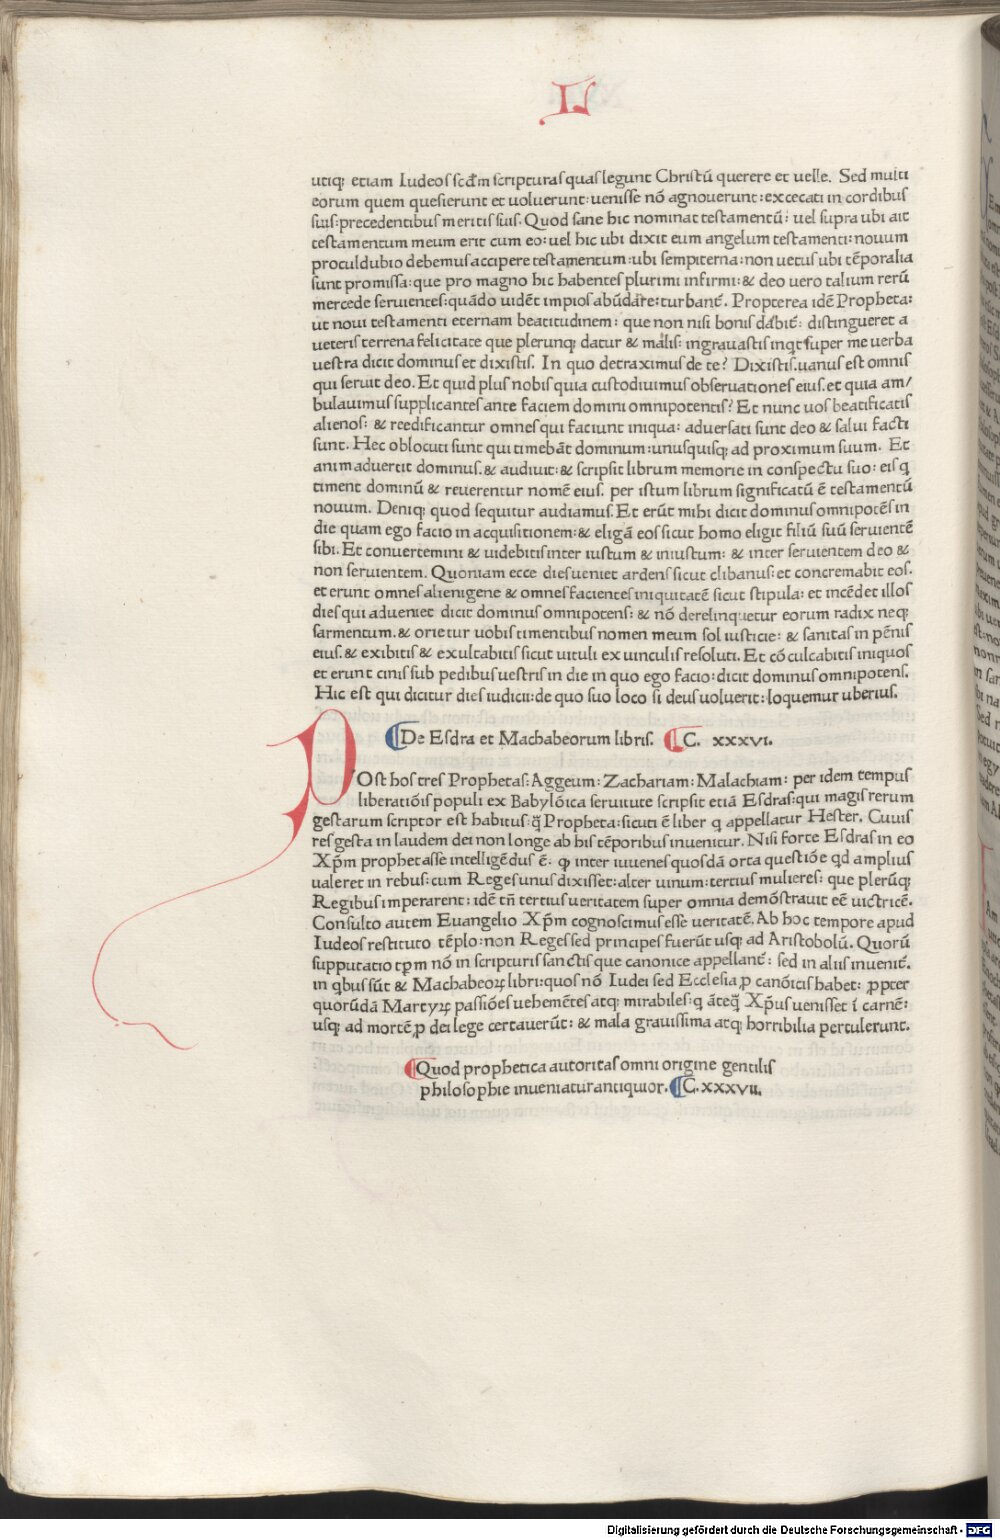 L
utiq; etiam Iudeos scd̄m scripturas quas legunt Christū querere et uelle. Sed multi
eorum quem quesierunt et uoluerunt: uenisse nō agnouerunt: excecati in cordibus
suis: precedentibus meritis suis. Quod sane hic nominat testamentū: uel supra ubi ait
testamentum meum erit cum eo: uel hic ubi dixit eum angelum testamenti: nouum
proculdubio debemus accipere testamentum: ubi sempiterna: non uetus ubi tēporalia
sunt promissa: que pro magno hic habentes plurimi infirmi: & deo uero talium rerū
mercede seruientes: quādo uidēt impios abūdare: turbant̄. Propterea idē Propheta:
ut noui testamenti eternam beatitudinem: que non nisi bonis dabit̄: distingueret a
ueteris terrena felicitate que plerunq; datur & malis: ingrauastis inqt super me uerba
uestra dicit dominus et dixistis. In quo detraximus de te? Dixistis. uanus est omnis
qui seruit deo. Et quid plus nobis quia custodiuimus obseruationes eius. et quia am/
bulauimus supplicantes ante faciem domini omnipotentis? Et nunc uos beatificatis
alienos: & reedificantur omnes qui faciunt iniqua: aduersati sunt deo & salui facti
sunt. Hec oblocuti sunt qui timebāt dominum: unusquisq; ad proximum suum. Et
animaduertit dominus. & audiuit: & scripsit librum memorie in conspectu suo: eis q
timent dominū & reuerentur nomē eius. per istum librum significatū ē testamentū
nouum. Deniq; quod sequitur audiamus. Et erūt mihi dicit dominus omnipotēs in
die quam ego facio in acquisitionem: & eligā eos sicut homo eligit filiū suū seruientē
sibi. Et conuertemini & uidebitis inter iustum & iniustum: & inter seruientem deo &
non seruientem. Quoniam ecce dies ueniet ardens sicut clibanus: et concremabit eos.
et erunt omnes alienigene & omnes facientes iniquitatē sicut stipula: et incēdet illos
dies qui adueniet dicit dominus omnipotens: & nō derelinquetur eorum radix neq;
sarmentum. & orietur uobis timentibus nomen meum sol iusticie: & sanitas in pēnis
eius. & exibitis & exultabitis sicut uituli ex uinculis resoluti. Et cōculcabitis iniquos
et erunt cinis sub pedibus uestris in die in quo ego facio: dicit dominus omnipotens.
Hic est qui dicitur dies iudicii: de quo suo loco si deus uoluerit: loquemur uberius.
De Esdra et Machabeorum libris. C. xxxvi.
POst hos tres Prophetas: Aggeum: Zachariam: Malachiam: per idem tempus
liberatiōis populi ex Babylōica seruitute scripsit etiā Esdras: qui magis rerum
gestarum scriptor est habitus: q̄ Propheta: sicuti ē liber q appellatur Hester. Cuius
res gesta in laudem dei non longe ab his tēporibus inuenitur. Nisi forte Esdras in eo
Xp̄m prophetasse intelligēdus ē: ꝙ inter iuuenes quosdā orta questiōe qd amplius
ualeret in rebus: cum Reges unus dixisset: alter uinum: tertius mulieres: que plerūq;
Regibus imperarent: idē tn̄ tertius ueritatem super omnia demōstrauit eē uictricē.
Consulto autem Euangelio Xp̄m cognoscimus esse ueritatē. Ab hoc tempore apud
Iudeos restituto tēplo: non Reges sed principes fuerūt usq; ad Aristobolū. Quorū
supputatio tꝑm nō in scripturis sanctis que canonice appellant̄: sed in aliis inuenit̄.
in qbus sūt & Machabeoꝝ libri: quos nō Iudei sed Ecclesia ꝓ canōicis habet: ꝓpter
quorūdā Martyꝝ passiōes uehemētes atq; mirabiles: q āteq̄ Xp̄us uenisset ī carnē:
usq; ad mortē ꝓ dei lege certauerūt: & mala grauissima atq; horribilia pertulerunt.
Quod prophetica autoritas omni origine gentilis
philosophie inueniatur antiquior. C. xxxvii.
Digitalisierung gefördert durch die Deutsche Forschungsgemeinschaft - DFG